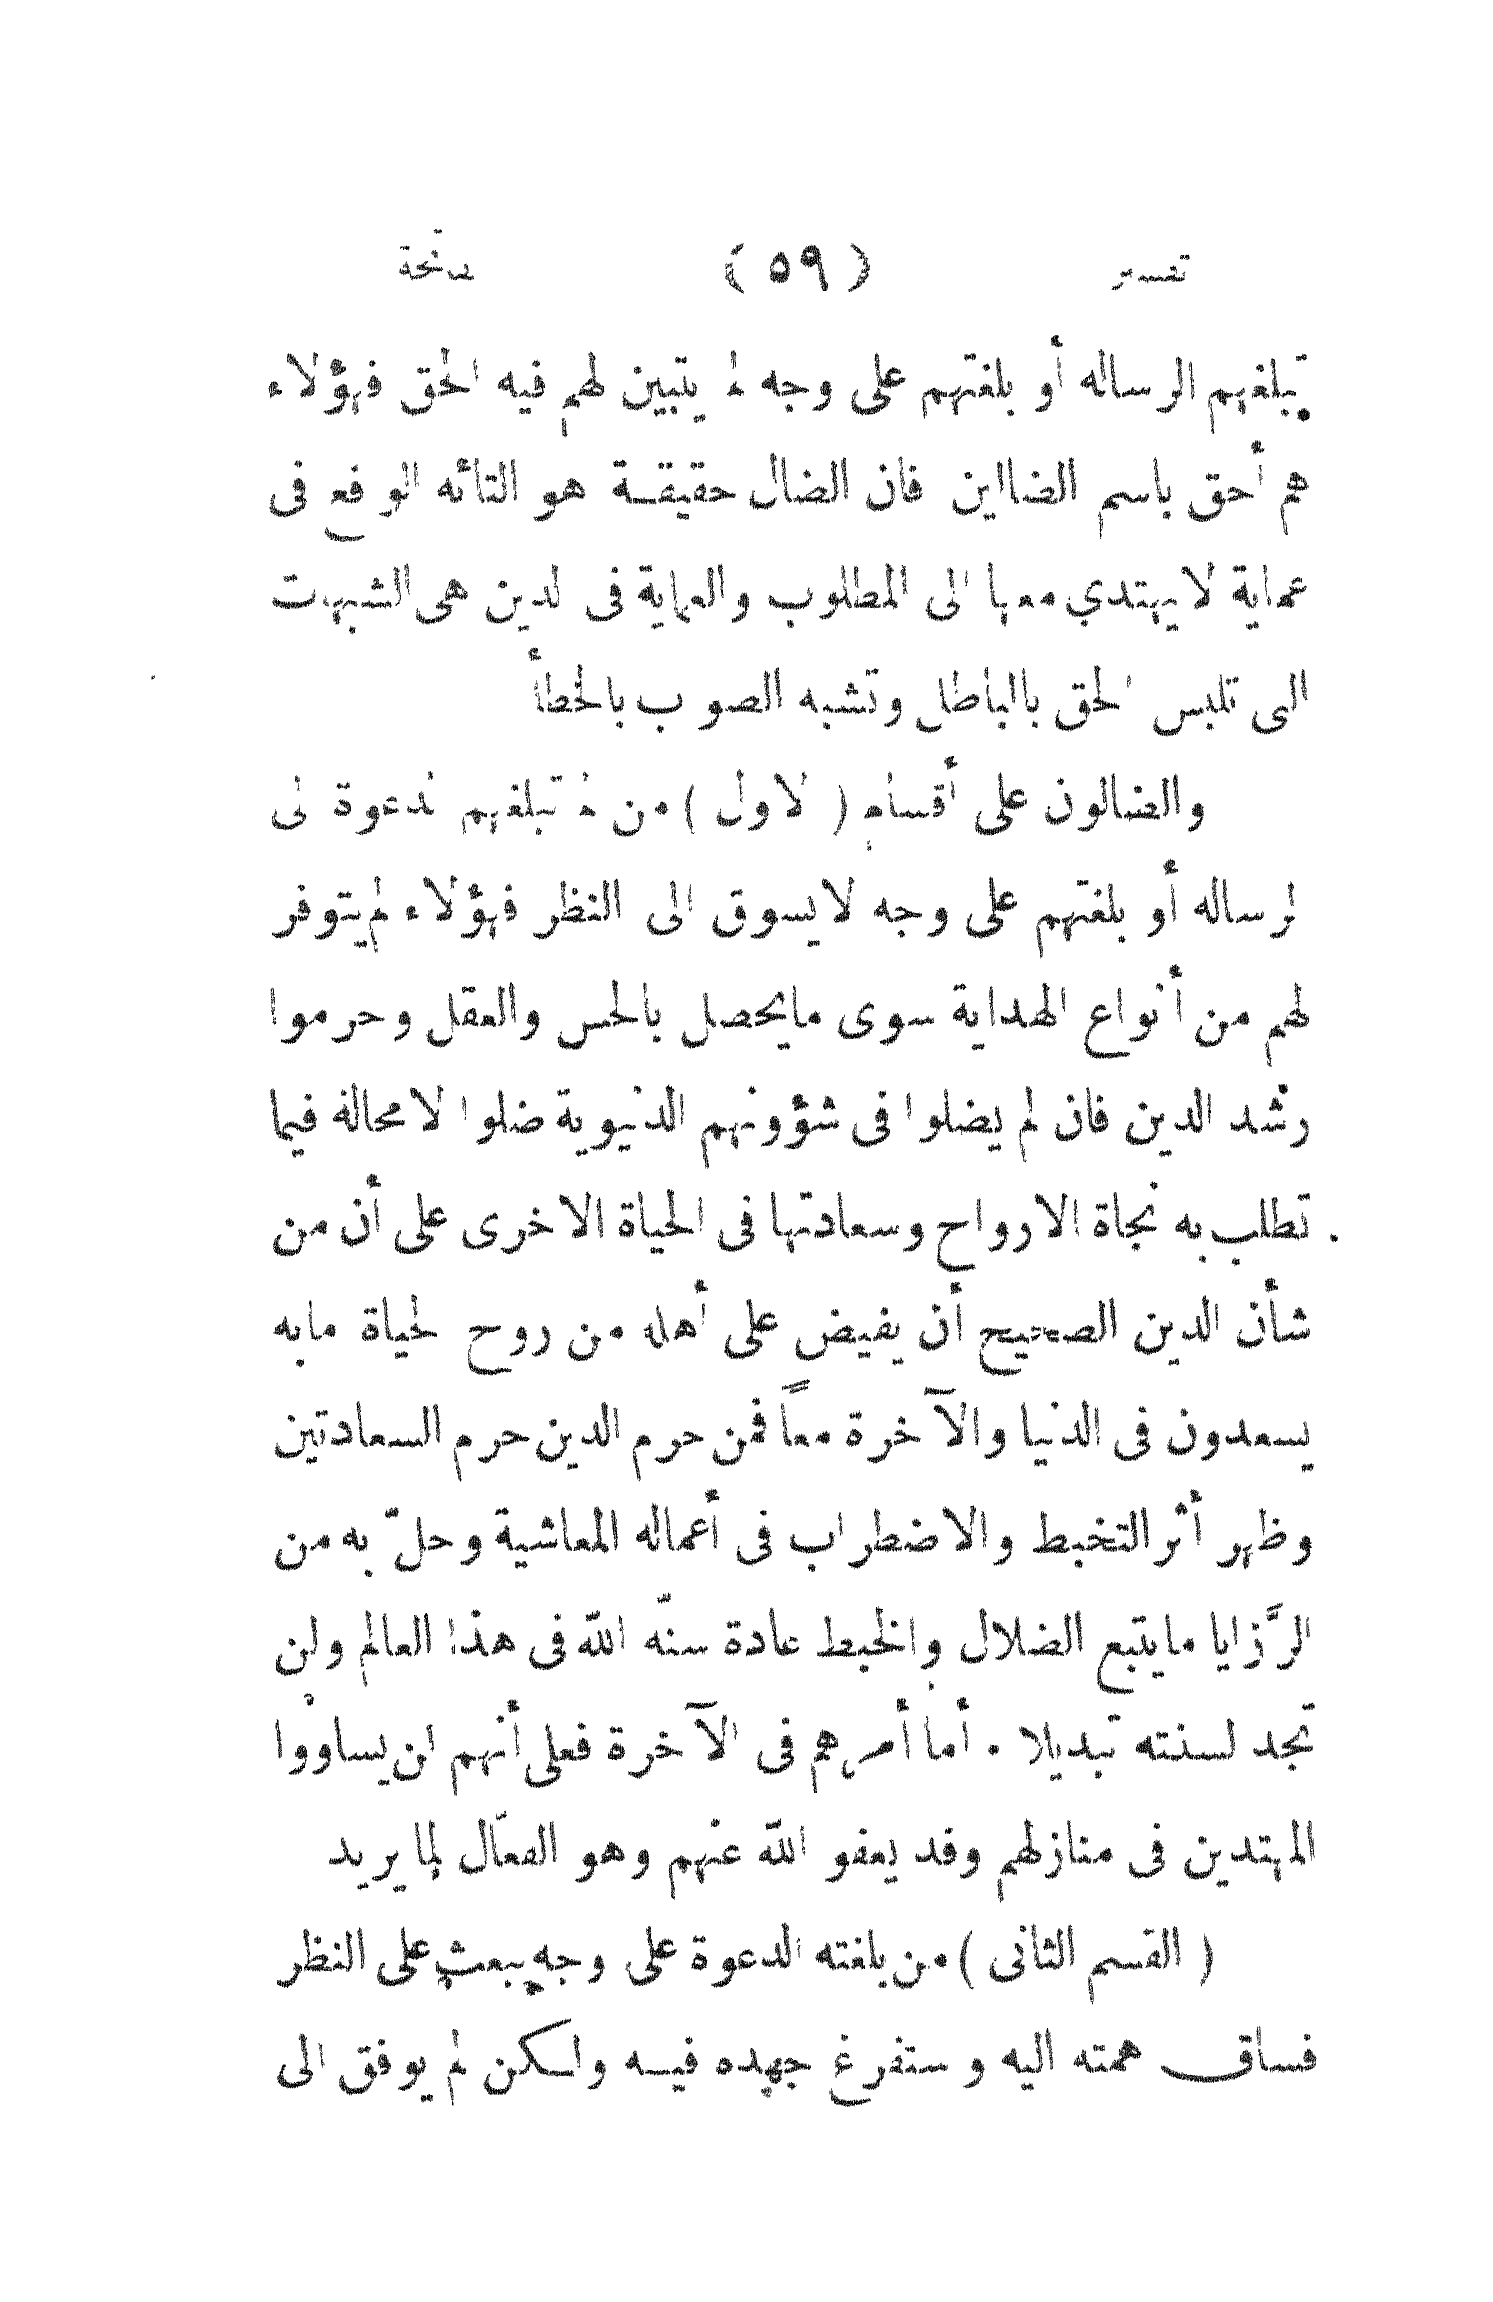 تفسير (٥٩) الفاتحة
تبلغهم الرساله أو بلغتهم على وجه لم يتبين لهم فيه الحق فهؤلاء
هم أحق باسم الضالين فان الضال حقيقة هو التائه الواقع فى
عماية لا يهتدي معها الى المطلوب والعماية فى الدين هى الشبهات
التى تلبس الحق بالباطل وتشبه الصواب بالخطأ
والضالون على أقسام ( الاول ) من لم تبلغهم الدعوة الى
الرساله أو بلغتهم على وجه لا يسوق الى النظر فهؤلاء لم يتوفر
لهم من أنواع الهداية سوى مايحصل بالحس والعقل وحرموا
رشد الدين فان لم يضلوا فى شؤونهم الدنيوية ضلوا لا محالة فيما
تطلب به نجاة الارواح وسعادتها فى الحياة الاخرى على أن من
شأن الدين الصحيح أن يفيض على أهله من روح الحياة مابه
يسعدون فى الدنيا والآخرة معاً فمن حرم الدين حرم السعادتين
وظهر أثر التخبط والاضطراب فى أعماله المعاشية وحلّ به من
الرَّزايا مايتبع الضلال والخبط عادة سنّه الله فى هذا العالم ولن
تجد لسنته تبديلا . أما أمرهم فى الآخرة فعلى أنهم لن يساوْوا
المهتدين فى منازلهم وقد يعفو الله عنهم وهو الفعّال لما يريد
( القسم الثانى ) من بلغته الدعوة على وجهٍ يبعث على النظر
فساق همته اليه واستفرغ جهده فيه ولكن لم يوفق الى